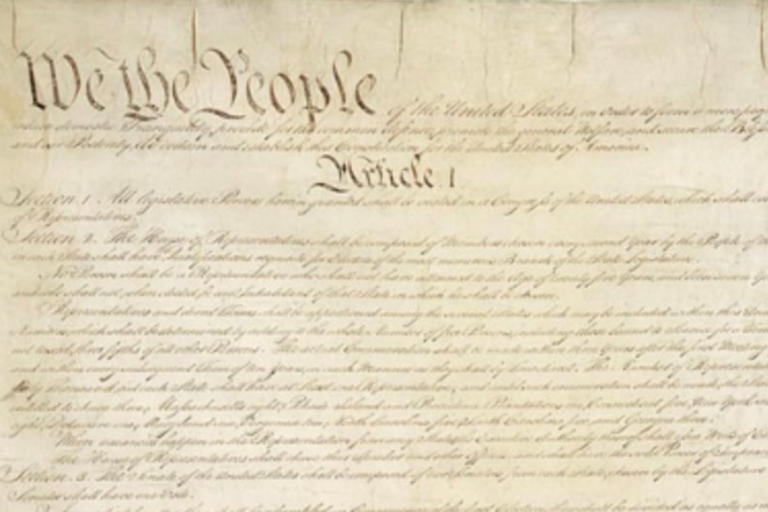 We the People of the United States, in Order to form a more
domestic Tranquility, provide for the common defence, promote the general Welfare, and secure the
and our Posterity, do ordain and establish this Constitution for the United States of America.
Article I
Section 1. All legislative Powers herein granted shall be vested in a Congress of the United States, which shall
of Representatives.
Section 2. The House of Representatives shall be composed of Members chosen every second Year by the People of
in each State shall have Qualifications requisite for Electors of the most numerous Branch of the State Legislature.
No Person shall be a Representative who shall not have attained to the Age of twenty five Years, and
and who shall not, when elected, be an Inhabitant of that State in which he shall be chosen.
Representatives and direct Taxes shall be apportioned among the several States which may be included within this
Numbers, which shall be determined by adding to the whole Number of free Persons, including those bound to Service for a
not taxed, three fifths of all other Persons. The actual Enumeration shall be made within three Years after the first Meeting
and within every subsequent Term of ten Years, in such Manner as they shall by Law direct. The Number of
thirty Thousand, but each State shall have at Least one Representative; and until such enumeration shall be made, the
entitled to chuse three, Massachusetts eight, Rhode Island and Providence Plantations one, Connecticut five, New York
eight, Delaware one, Maryland six, Virginia ten, North Carolina five, South Carolina five, and Georgia three.
When vacancies happen in the Representation from any State, the Executive Authority thereof shall issue Writs of
The House of Representatives shall chuse their Speaker and other Officers; and shall have the sole Power of
Section 3. The Senate of the United States shall be composed of two Senators from each State, chosen by the Legislature
Senator shall have one Vote.